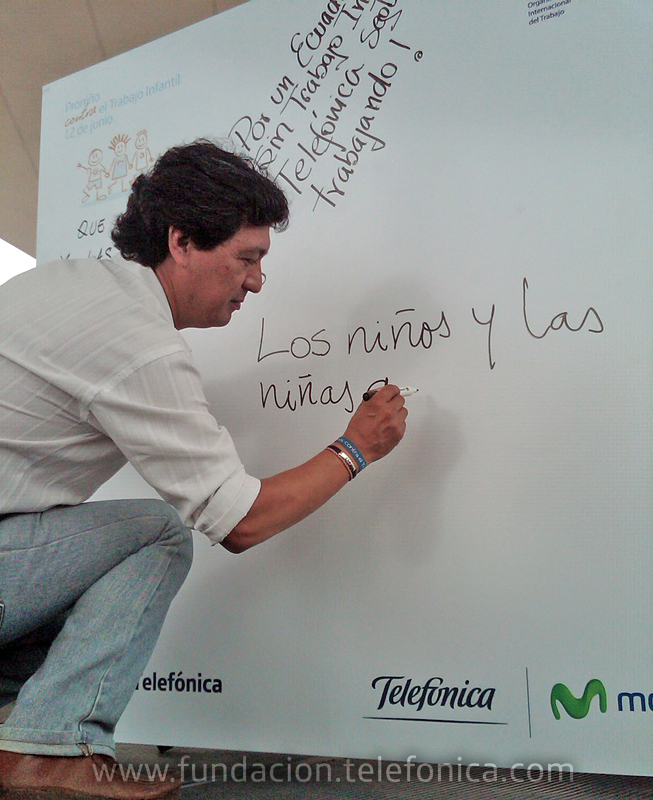 Organi
Internacional
del Trabajo
Proniño
contra el Trabajo Infantil
12 de junio
Por un Ecuad
Sin Trabajo In
Telefónica
trabajando!
QUE
Y LAS
Los niños y las
niñas
Telefónica
Telefónica
mo
www.fundacion.telefonica.com